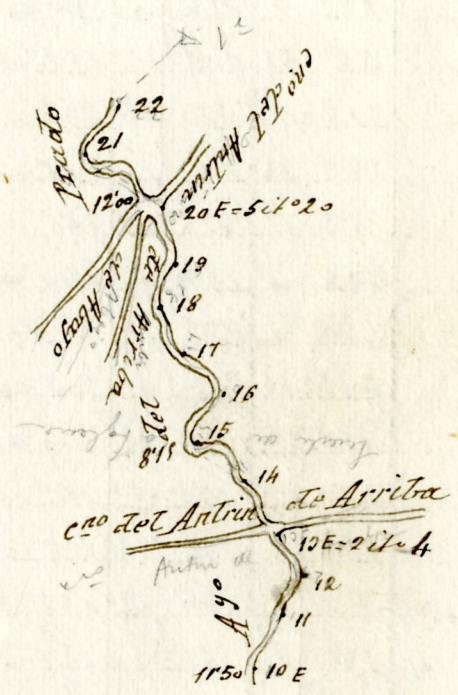 22
21
Prado
cno del Antrin
12'00
20 E = 5 it o 20
19
de Abajo
de Arriba
18
17
16
15
8'15
del
14
cno del Antrin de Arriba
13 E = 2 it o 4
12
Ayo
11
11'50
10 E